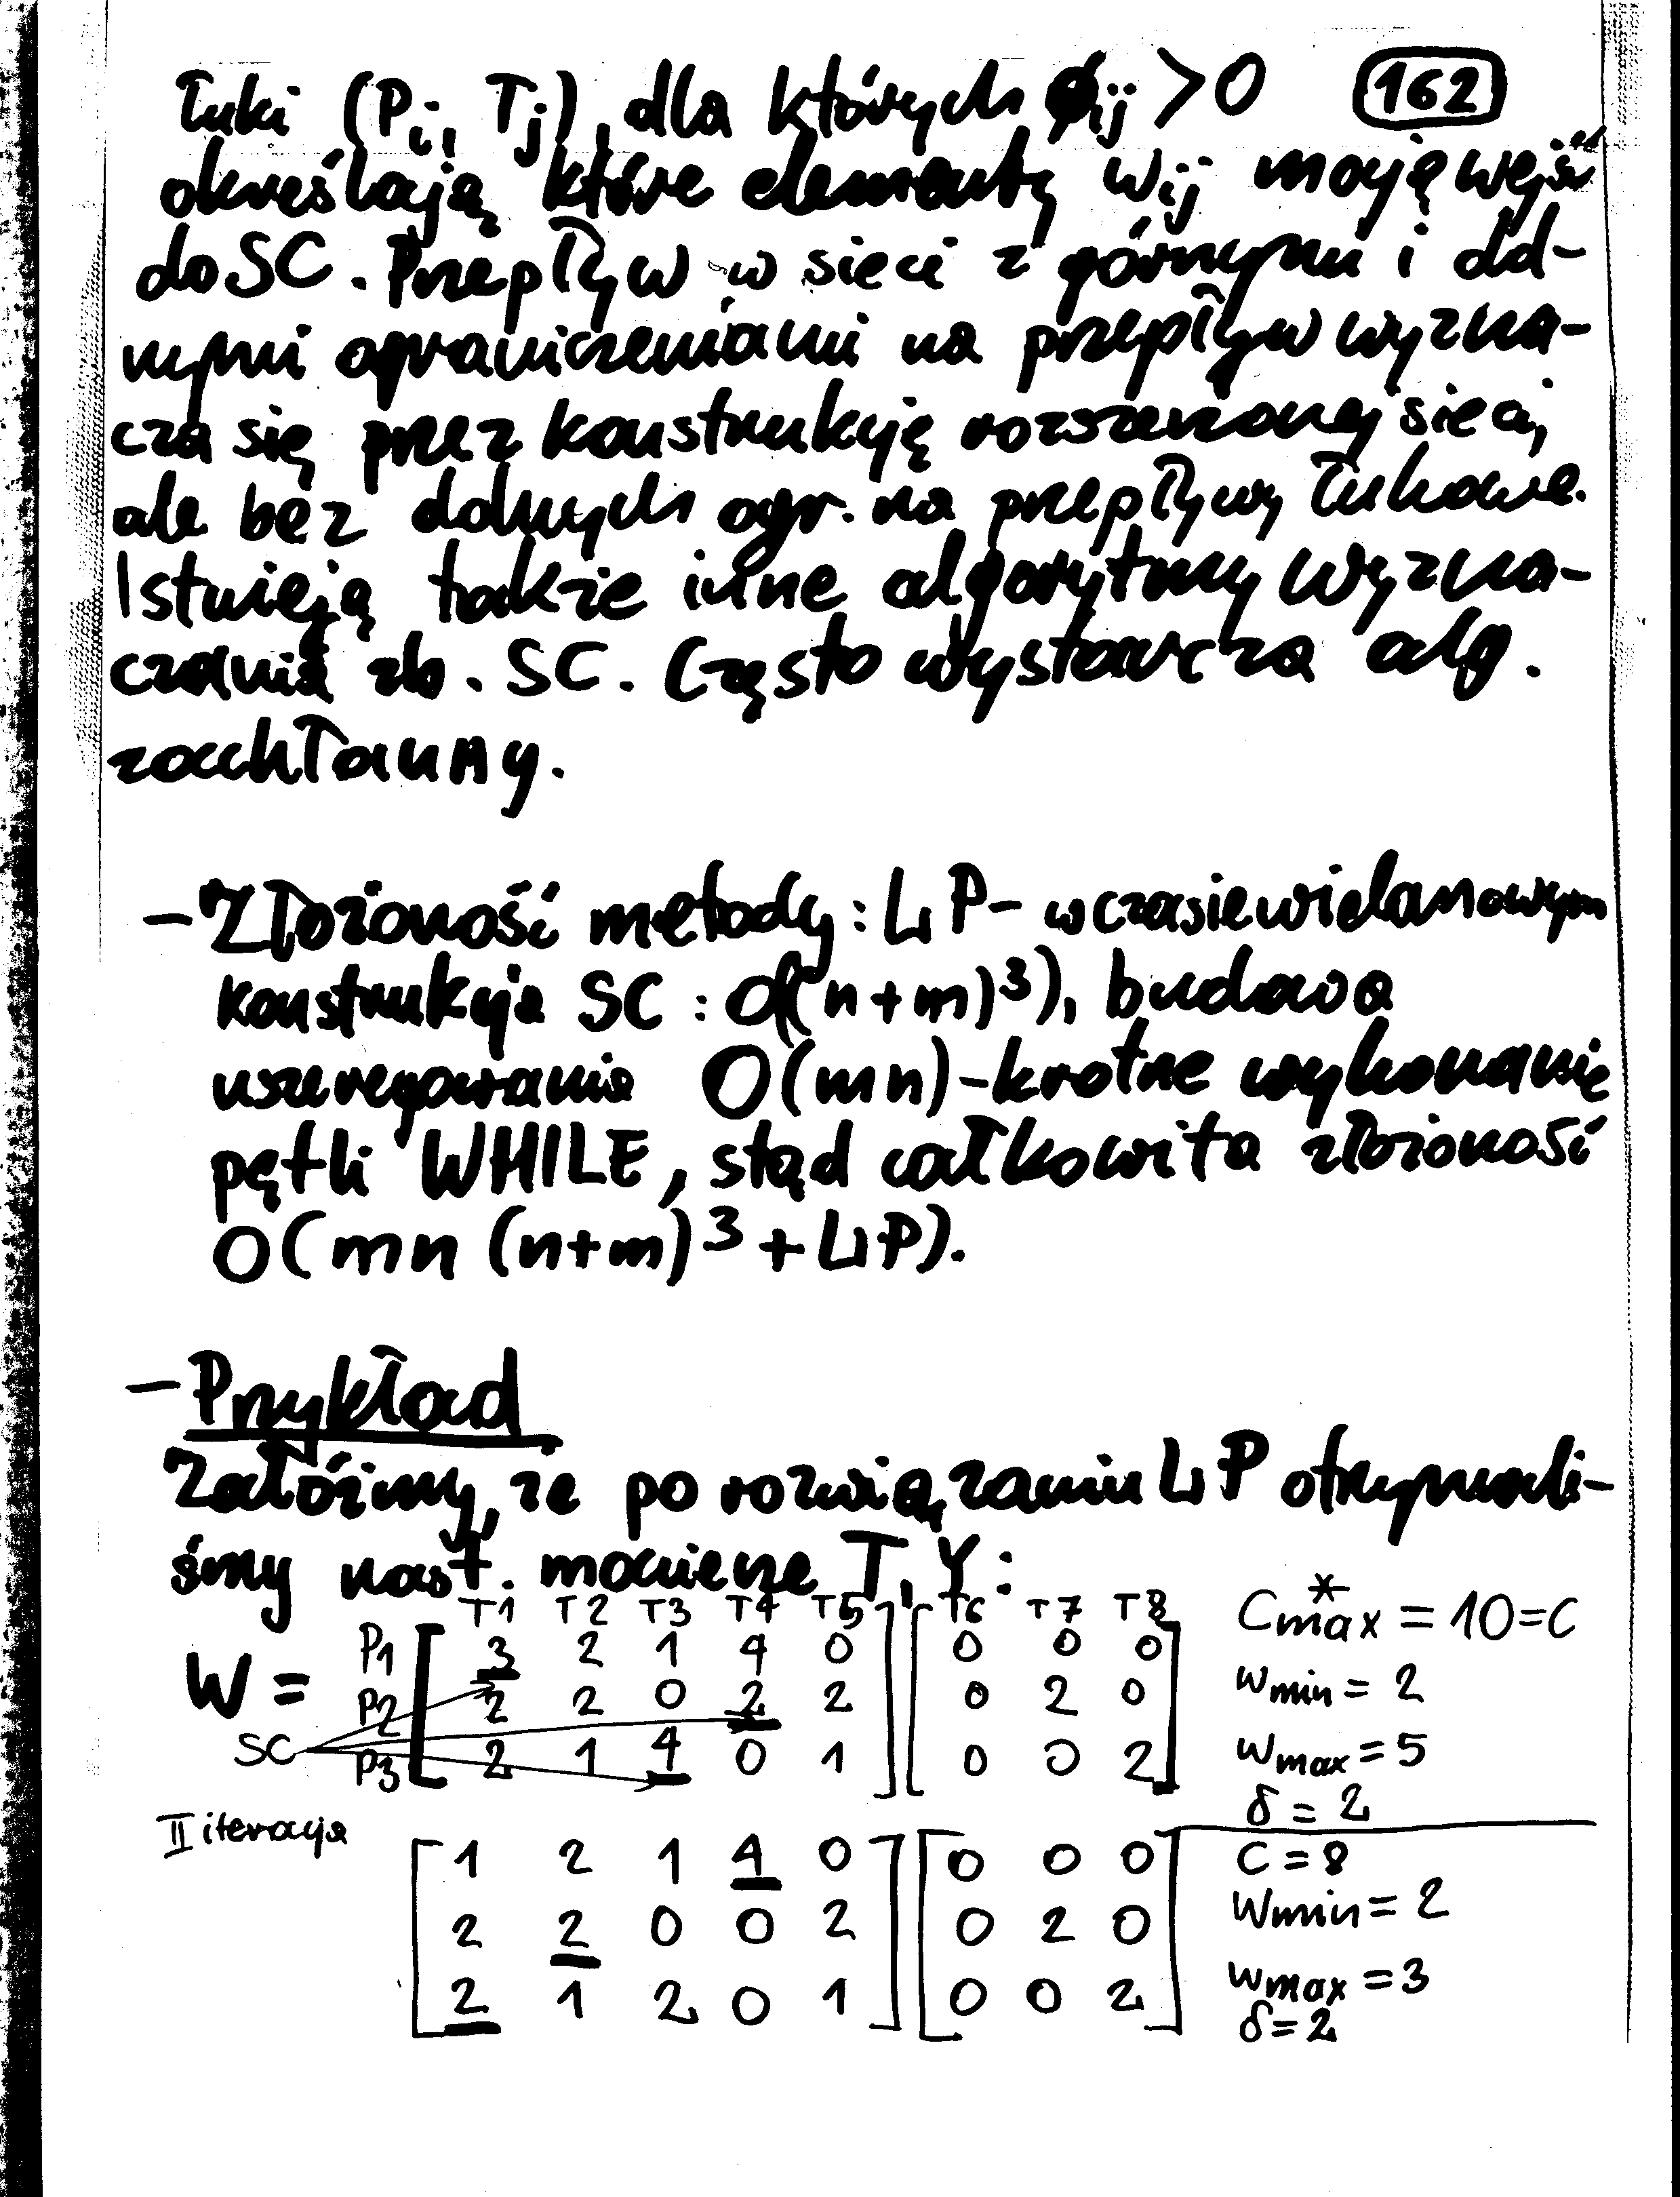 Łuki (Pi, Tj), dla których φij > 0 (162)
określają które elementy wij mogą wejść
do SC. Przepływ w sieci z górnymi i dol-
nymi ograniczeniami na przepływ wyzna-
cza się przez konstrukcję rozszerzonej sieci,
ale bez dolnych ogr. na przepływy łukowe.
Istnieją także inne algorytmy wyzna-
czania zb. SC. Często wystarcza alg.
zachłanny.
- Złożoność metody: LP - w czasie wielomianowym
konstrukcja SC : O((n+m)³), budowa
uszeregowania O(mn)-krotne wykonanie
pętli WHILE, stąd całkowita złożoność
O(mn (n+m)³ + LP).
- Przykład
Załóżmy, że po rozwiązaniu LP otrzymali-
śmy nast. macierze T, Y:
T1 T2 T3 T4 T5 T6 T7 T8 C*max = 10 = C
W = P1 [ 3 2 1 4 0 ] [ 0 0 0 ]
P2 2 2 0 2 2 0 2 0 wmin = 2
SC P3 2 1 4 0 1 0 0 2 wmax = 5
δ = 2
II iteracja
1 2 1 4 0 0 0 0 C = 8
2 2 0 0 2 0 2 0 wmin = 2
2 1 2 0 1 0 0 2 wmax = 3
δ = 2